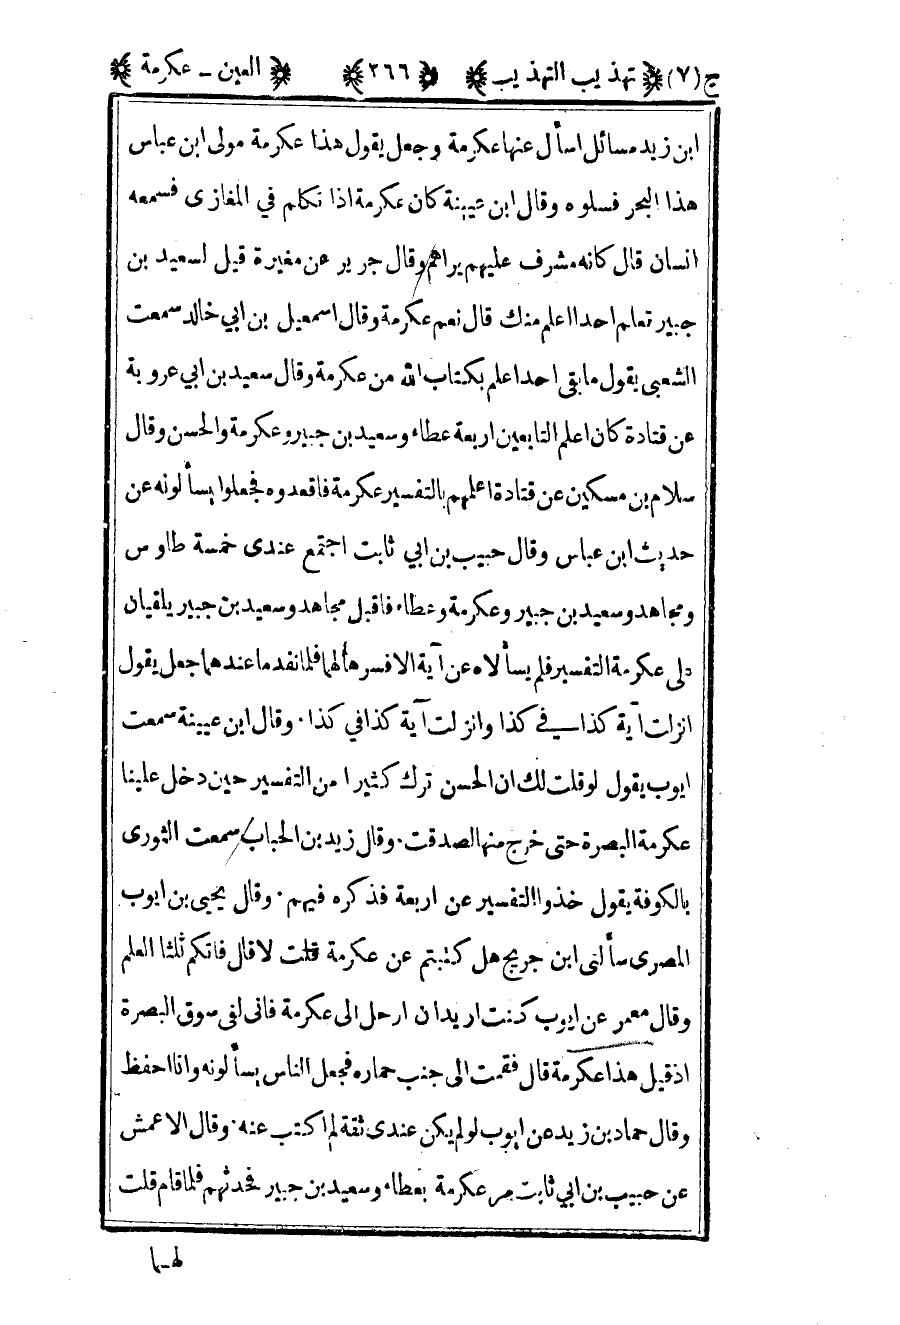 ج (٧) تهذيب التهذيب ٢٦٦ العين - عكرمة
ابن زيد مسائل اسأل عنها عكرمة وجعل يقول هذا عكرمة مولى ابن عباس
هذا البحر فسلوه وقال ابن عيينة كان عكرمة اذا تكلم في المغازى فسمعه
انسان قال كانه مشرف عليهم يراهم وقال جرير عن مغيرة قيل لسعيد بن
جبير تعلم احدا اعلم منك قال نعم عكرمة وقال اسمعيل بن ابي خالد سمعت
الشعبى يقول ما بقى احد اعلم بكتاب الله من عكرمة وقال سعيد بن ابي عروبة
عن قتادة كان اعلم التابعين اربعة عطاء وسعيد بن جبير وعكرمة والحسن وقال
سلام بن مسكين عن قتادة اعلمهم بالتفسير عكرمة فاقعدوه فجعلوا يسألونه عن
حديث ابن عباس وقال حبيب بن ابي ثابت اجتمع عندى خمسة طاوس
ومجاهد وسعيد بن جبير وعكرمة وعطاء فاقبل مجاهد وسعيد بن جبير يلقيان
على عكرمة التفسير فلم يسألاه عن آية الا فسرها لهما فلما نفد ما عندهما جعل يقول
انزلت آية كذا في كذا وانزلت آية كذا في كذا ٠ وقال ابن عيينة سمعت
ايوب يقول لو قلت لك ان الحسن ترك كثيرا من التفسير حين دخل علينا
عكرمة البصرة حتى خرج منها لصدقت ٠ وقال زيد بن الحباب سمعت الثورى
بالكوفة يقول خذوا التفسير عن اربعة فذكره فيهم ٠ وقال يحيى بن ايوب
المصرى سألنى ابن جريج هل كتبتم عن عكرمة قلت لا قال فاتكم ثلثا العلم
وقال معمر عن ايوب كنت اريد ان ارحل الى عكرمة فانى لفى سوق البصرة
اذ قيل هذا عكرمة قال فقمت الى جنب حماره فجعل الناس يسألونه وانا احفظ
وقال حماد بن زيد عن ايوب لو لم يكن عندى ثقة لم اكتب عنه ٠ وقال الاعمش
عن حبيب بن ابي ثابت مر عكرمة بعطاء وسعيد بن جبير فحدثهم فلما قام قلت
لهما